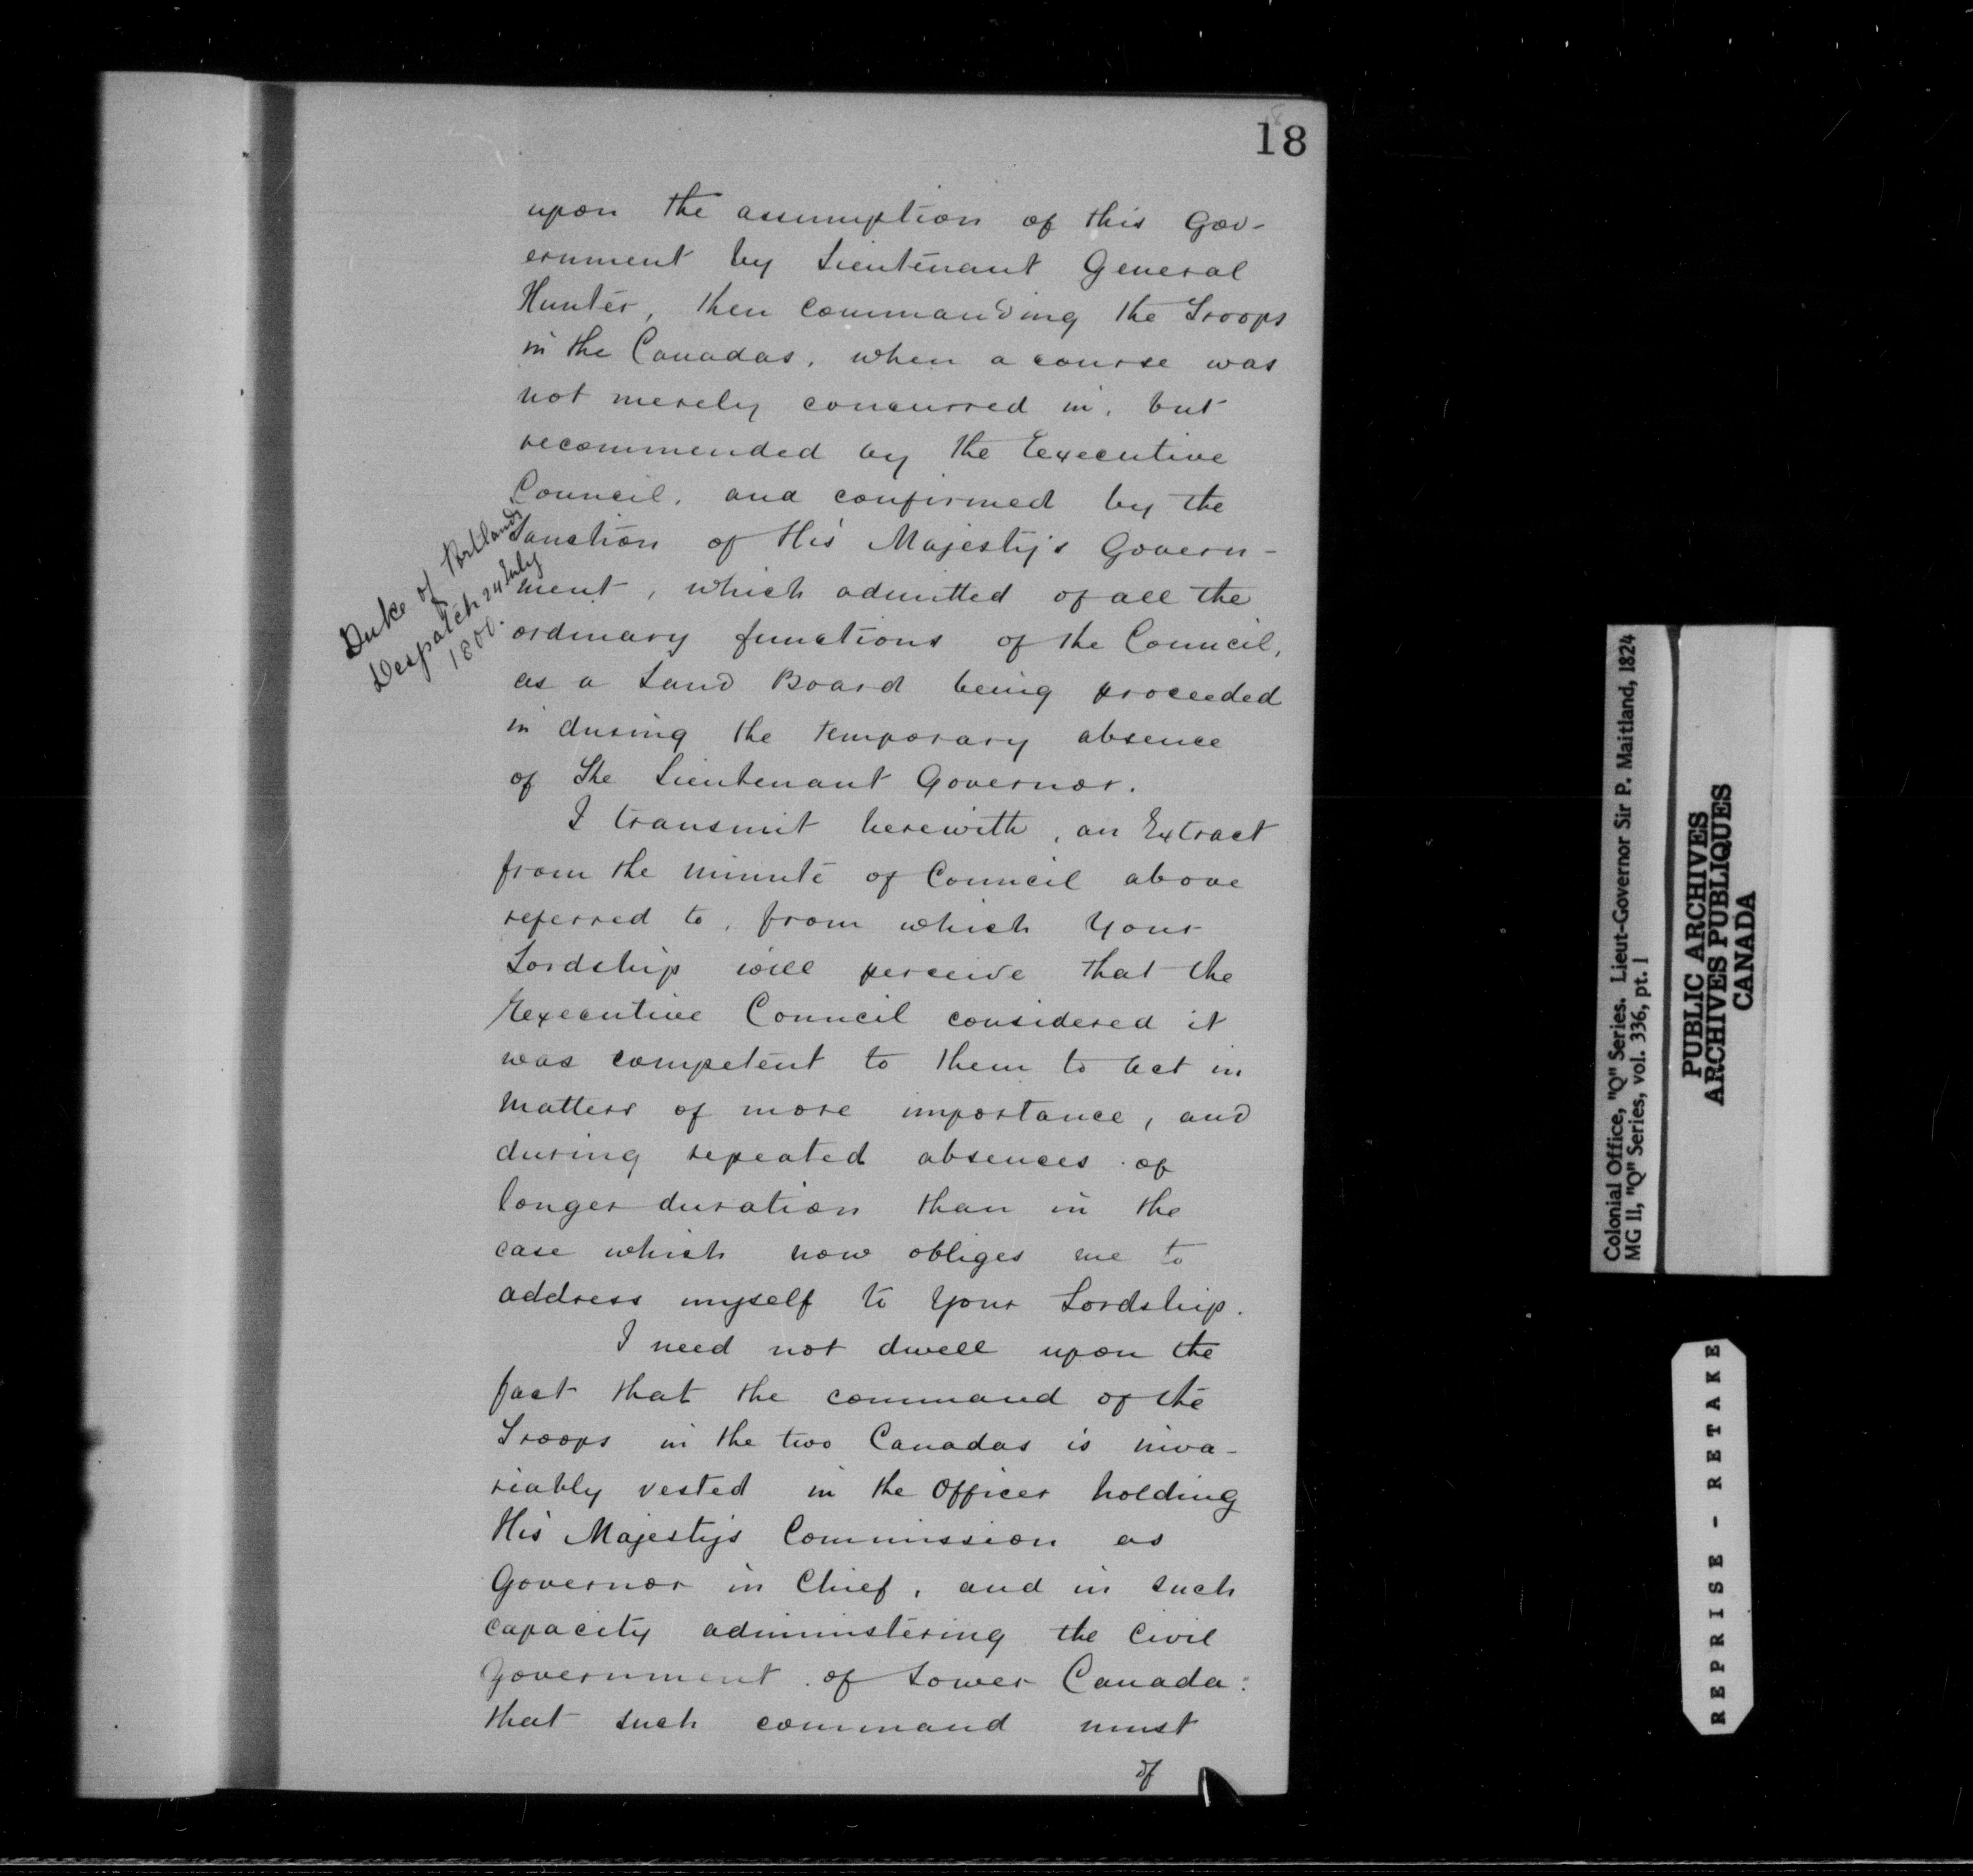 18
upon the assumption of this Gov-
ernment by Lieutenant General
Hunter, then commanding the Troops
in the Canadas, when a course was
not merely concurred in, but
recommended by the Executive
Council, and confirmed by the
Sanction of His Majesty's Govern-
ment, which admitted of all the
ordinary functions of the Council,
as a Land Board being proceeded
in during the temporary absence
of The Lieutenant Governor.
Duke of Portlands
Despatch 24 July
1800.
I transmit herewith, an Extract
from the minute of Council above
referred to, from which Your
Lordship will perceive that the
Executive Council considered it
was competent to them to act in
matters of more importance, and
during repeated absences of
longer duration than in the
case which now obliges me to
address myself to Your Lordship.
I need not dwell upon the
fact that the command of the
Troops in the two Canadas is inva-
riably vested in the Officer holding
His Majesty's Commission as
Governor in Chief, and in such
capacity administering the Civil
Government of Lower Canada:
that such command must
of
Colonial Office, "Q" Series. Lieut-Governor Sir P. Maitland, 1824
MG 11, "Q" Series, vol. 336, pt. 1
PUBLIC ARCHIVES
ARCHIVES PUBLIQUES
CANADA
REPRISE - RETAKE